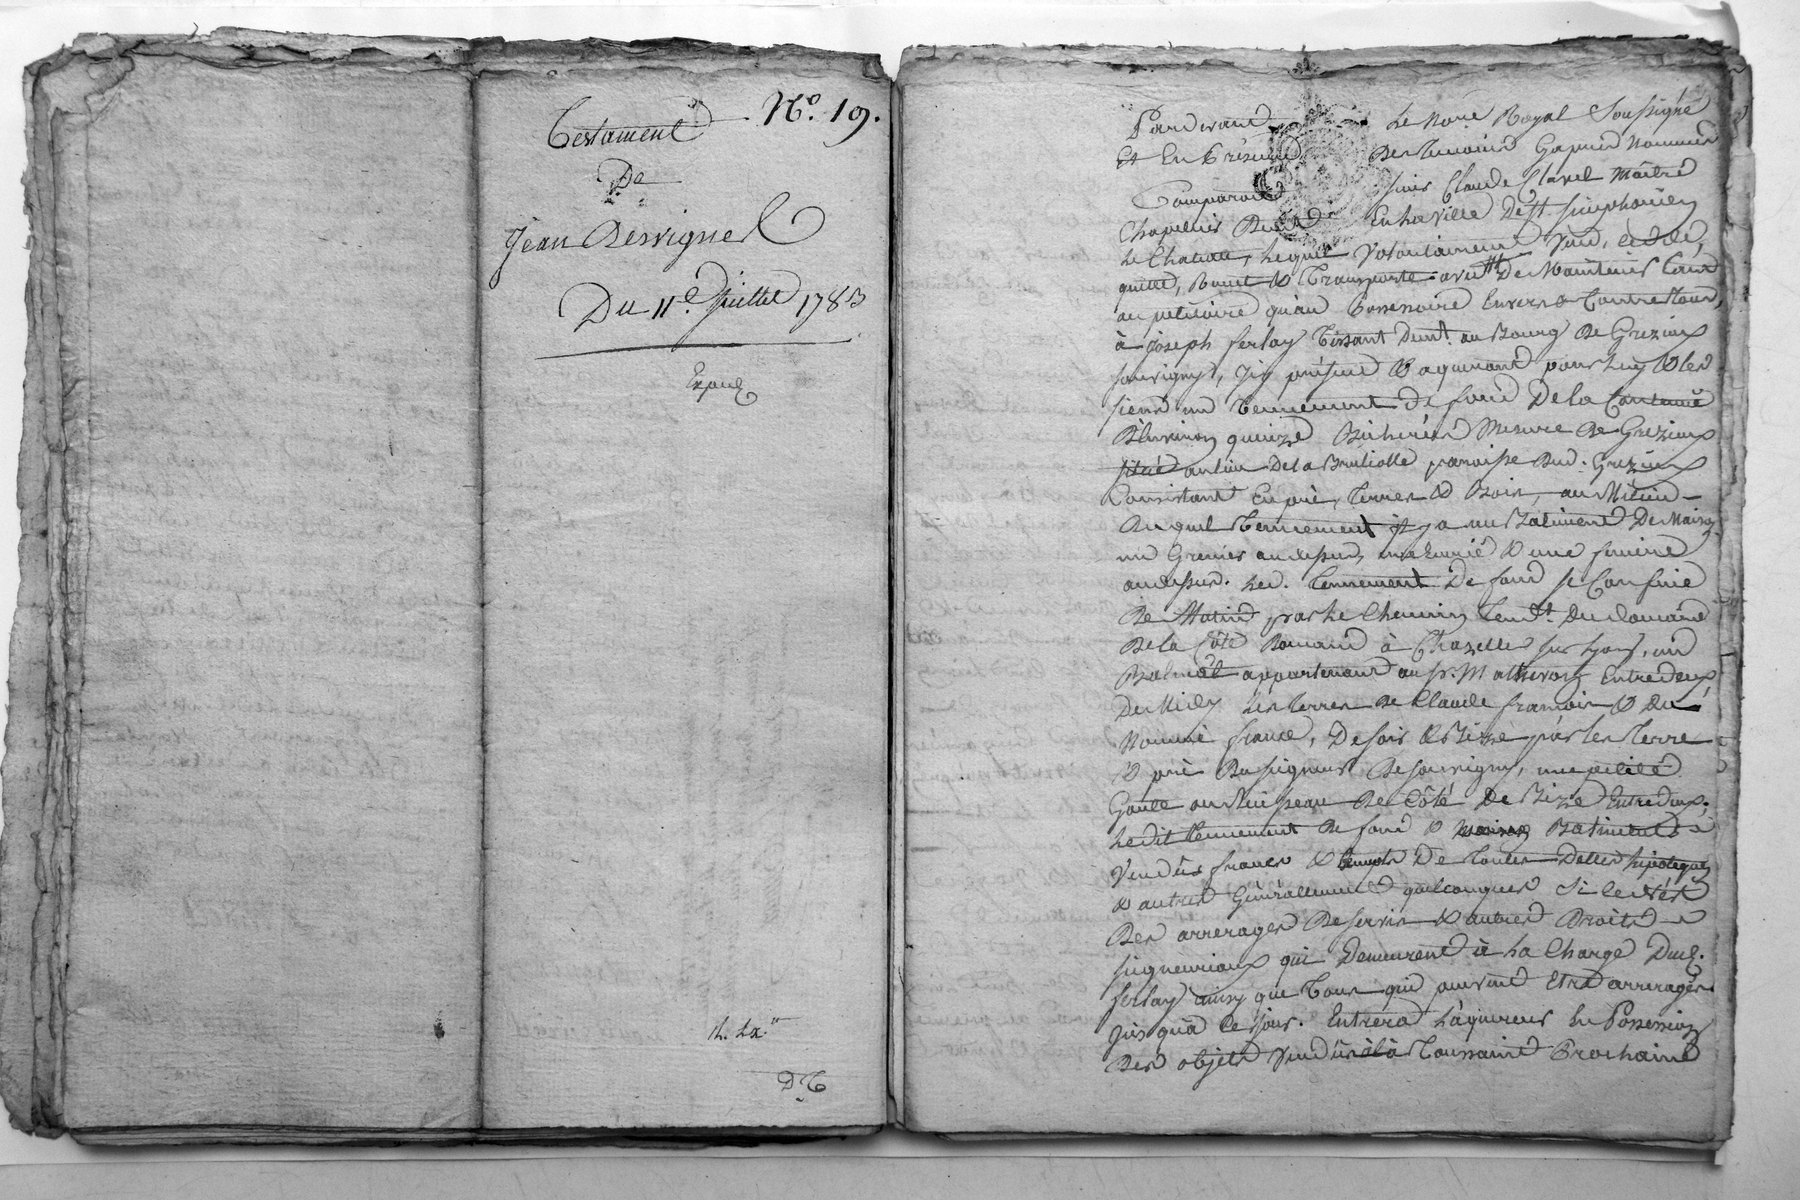 N° 19.
Testament
De
Jean Dessvigne
Du 11e. Juillet 1783
Expoué
D T
Pardevant Le Nore Royal Soussigné
Et En Présence Des Temoins Gapmés Nommés
Comparait sieur Claude Clavel Maitre
Chapellier Demt En la ville De st simphorien
Le Chateau, Lequel Volontairement Vend, cedde,
quitte, Remet & Transporte avec De Maintenir tant
au petitoire qu'au Possessoire Envers & Contre tous,
à joseph ferlay Tissant Demt. au Bourg De Grezieux
souvigny, Icy présent & aquerant pour Luy & les
siens un Tennement De fond De la Contenue
D'Environ quinze Bicherées Mesure De Grezieux
situé au lieu De la Bruliolle paroisse Dud. Grezieux
Consistant En pré, Terres & Bois, au Milieu
Duquel Tennement il y a un Batiment De Maison
un Grenier au dessus, une Ecurie & une feniere
au dessus. Led. Tennement De fond se Confine
De Matin par Le Chemin Tendt. Du domaine
De la Côte Romand à Chazelles sur Lyon, un
appartenant au sr. Matheron Entre deux
De Midy Les terres De Claude francois & Du
Nommé france, De soir & Bize par les Terre
& pré Du seigneur De souvigny, une petite
Goutte ou Ruisseau De Côté De Bize Entre deux,
Ledit Tennement De fond & Batiments
Vendus francs & De toutes Dettes hipoteques
& autres Généralement quelconques Si ce n'est
Des arrerages De servis & autres Droits
seigneuriaux qui Demeurent à la Charge Dud.
ferlay ainsy que Tous qui peuvent Etre arreragés
jusqu'à Ce jour. Entrera L'aquereur En Possession
Des objets Vendus à la Toussaint Prochaine